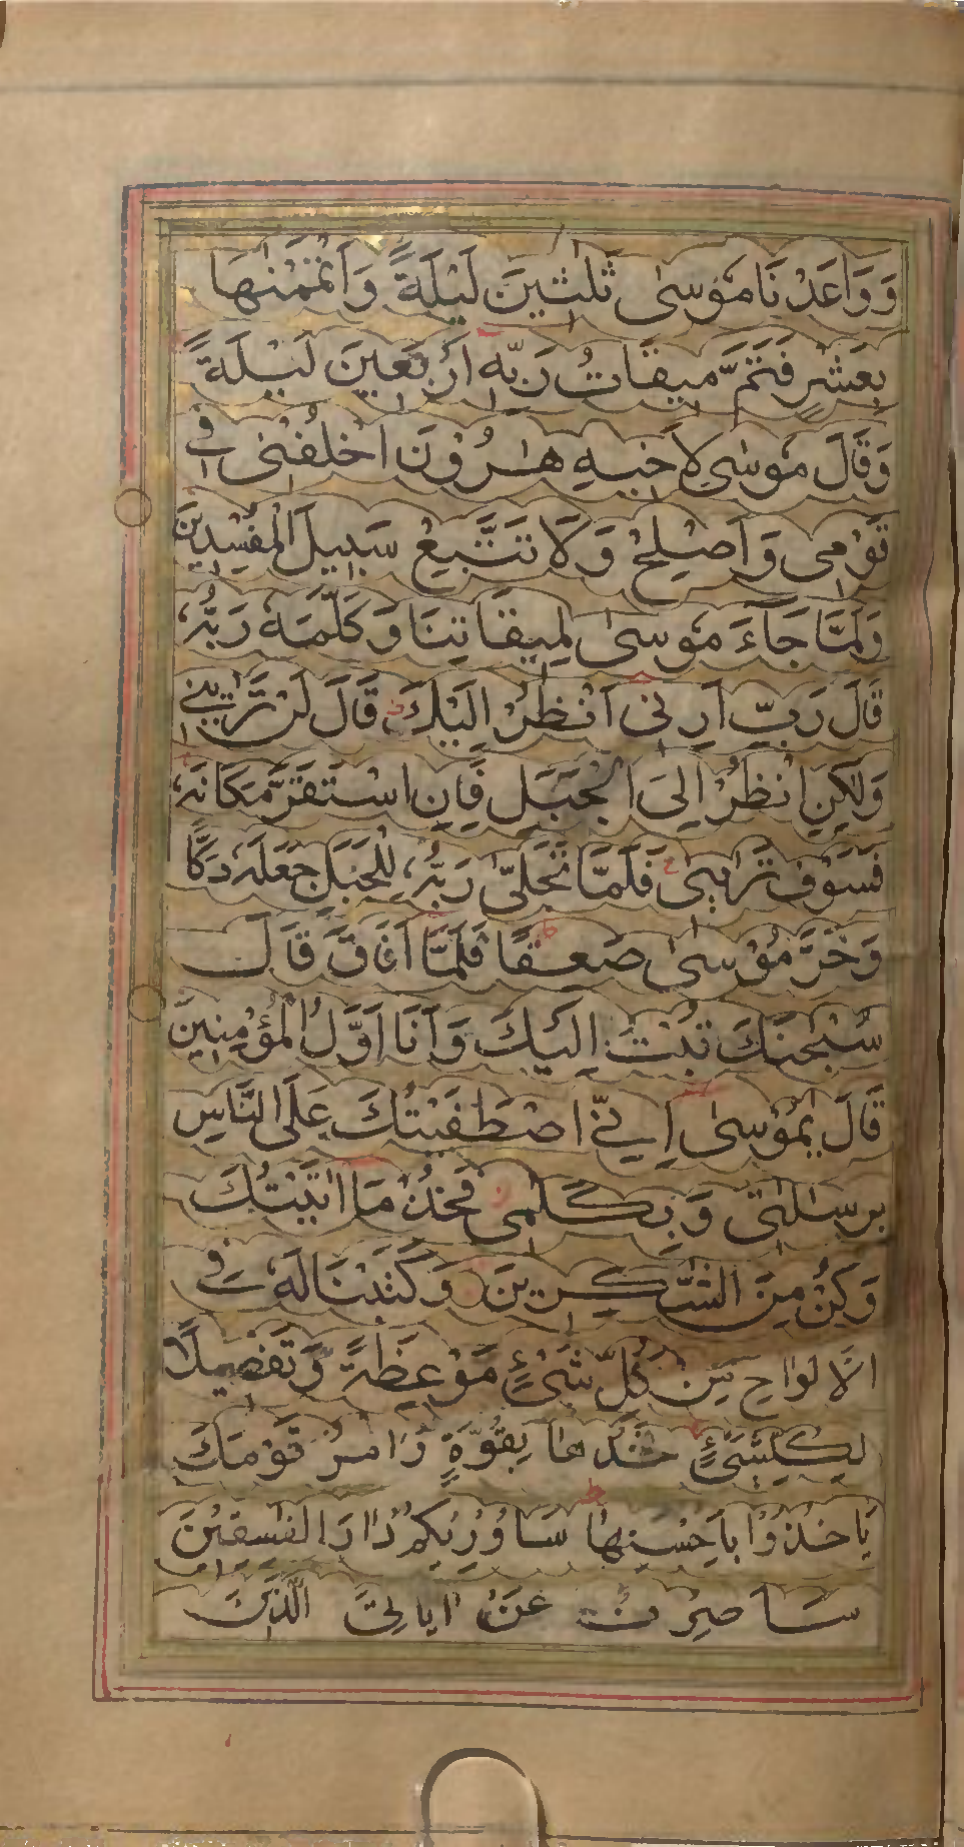 وَوَاعَدْنَا مُوْسٰى ثَلٰثِيْنَ لَيْلَةً وَاَتْمَمْنٰهَا
بِعَشْرٍ فَتَمَّ مِيقَاتُ رَبِّهٖ اَرْبَعِينَ لَيْلَةً
وَقَالَ مُوسٰى لِاَخِيهِ هٰرُوْنَ اخْلُفْنِى فِى
قَوْمِى وَاَصْلِحْ وَلَا تَتَّبِعْ سَبِيلَ الْمُفْسِدِيْنَ
وَلَمَّا جَآءَ مُوسٰى لِمِيقَاتِنَا وَكَلَّمَهٗ رَبُّهٗ
قَالَ رَبِّ اَرِنِى اَنْظُرْ اِلَيْكَ قَالَ لَنْ تَرٰىنِى
وَلٰكِنِ انْظُرْ اِلَى الْجَبَلِ فَاِنِ اسْتَقَرَّ مَكَانَهٗ
فَسَوْفَ تَرٰىنِى فَلَمَّا تَجَلّٰى رَبُّهٗ لِلْجَبَلِ جَعَلَهٗ دَكًّا
وَخَرَّ مُوْسٰى صَعِقًا فَلَمَّا اَفَاقَ قَالَ
سُبْحٰنَكَ تُبْتُ اِلَيْكَ وَاَنَا اَوَّلُ الْمُؤْمِنِيْنَ
قَالَ يٰمُوْسٰى اِنِّى اصْطَفَيْتُكَ عَلَى النَّاسِ
بِرِسٰلٰتِى وَبِكَلٰمِى فَخُذْ مَا اٰتَيْتُكَ
وَكُنْ مِنَ الشّٰكِرِيْنَ وَكَتَبْنَا لَهٗ فِى
الْاَلْوَاحِ مِنْ كُلِّ شَىْءٍ مَوْعِظَةً وَتَفْصِيلًا
لِكُلِّ شَىْءٍ فَخُذْهَا بِقُوَّةٍ وَامُرْ قَوْمَكَ
يَاخُذُوْا بِاَحْسَنِهَا سَاُورِيْكُمْ دَارَ الْفٰسِقِيْنَ
سَاَصْرِفُ عَنْ اٰيَاتِىَ الَّذِيْنَ